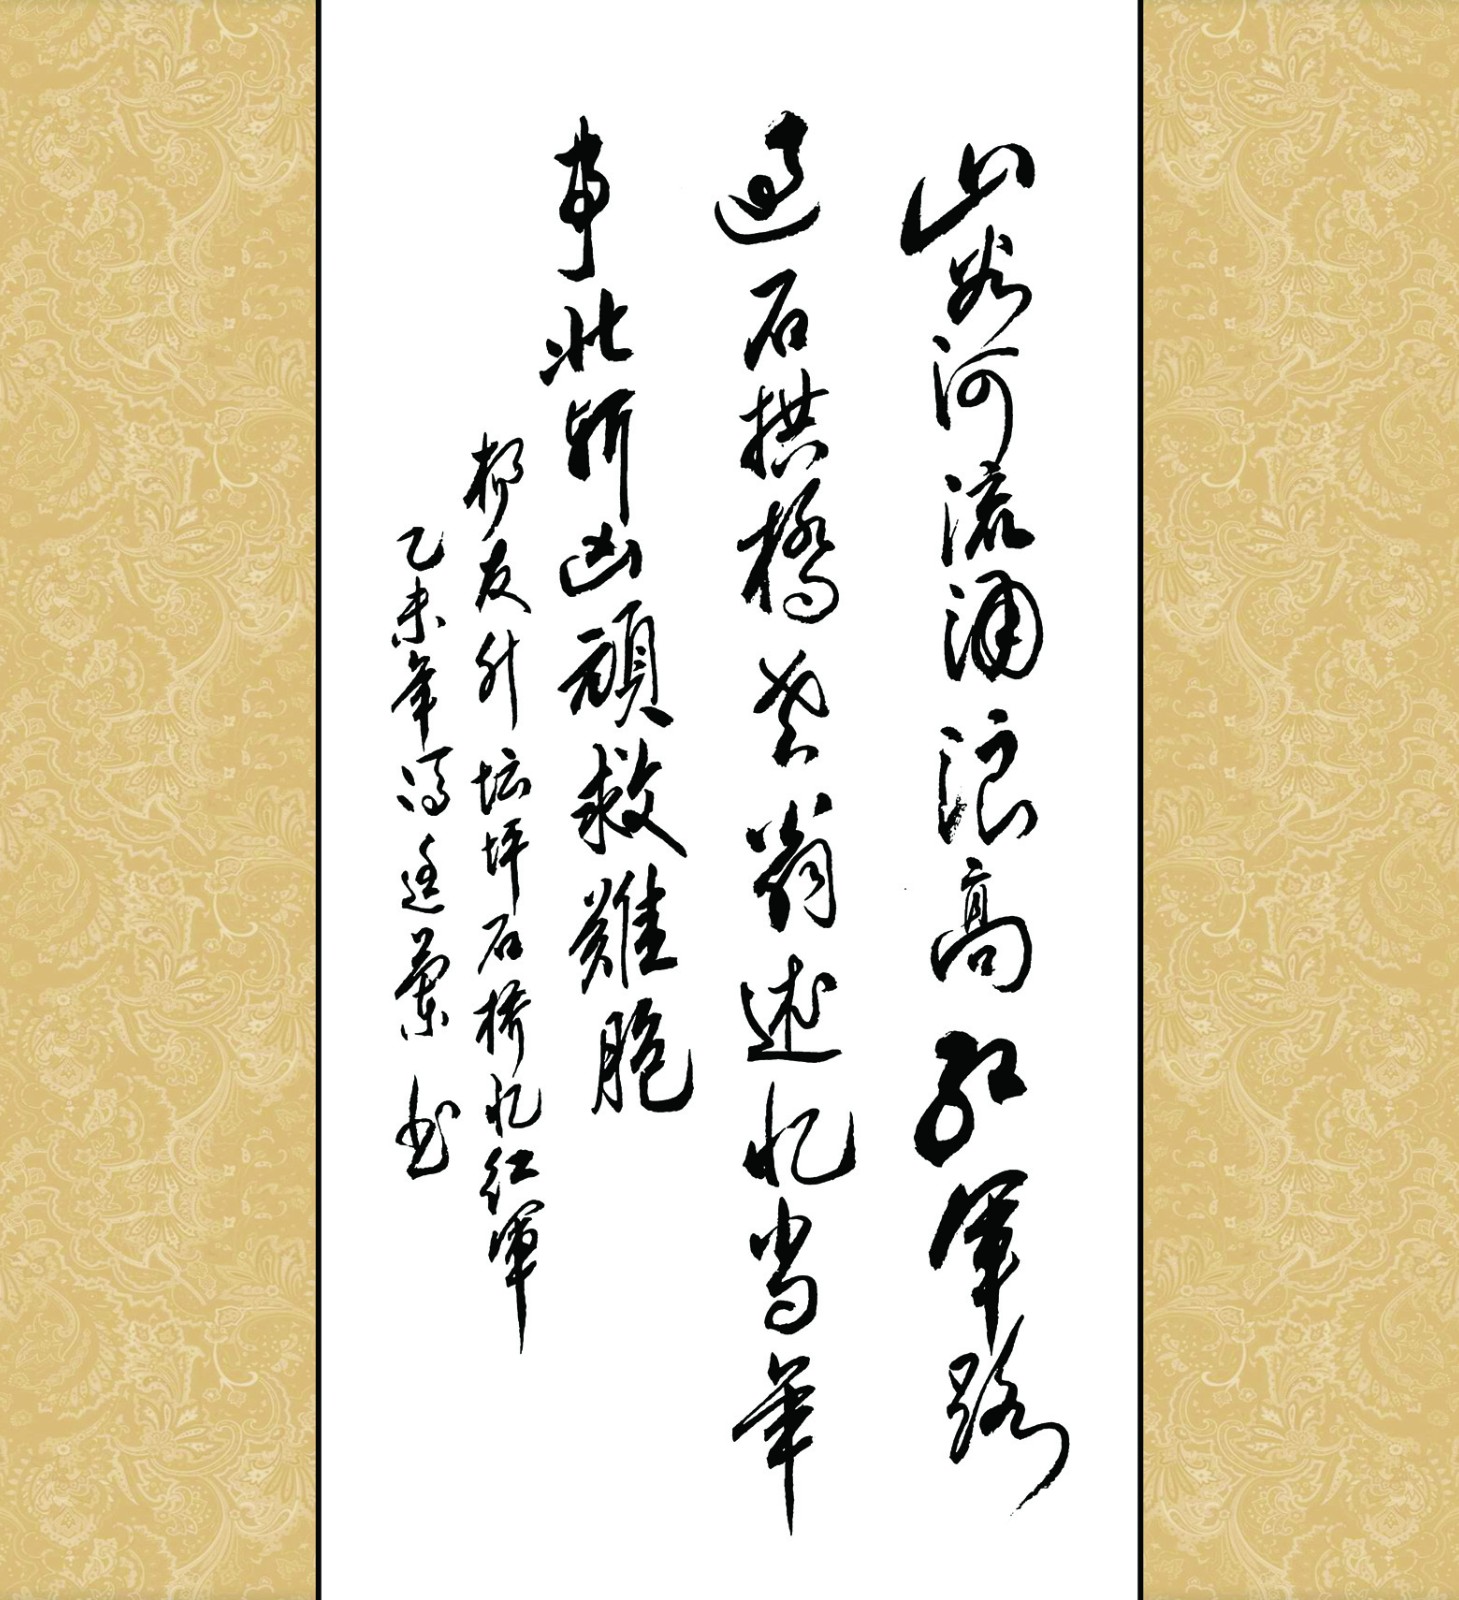 山谷河流涌浪高红军路
过石拱桥老翁述忆当年
事北斩凶顽救难胞
柳友升坛坪石桥忆红军
乙未年冯廷兰书